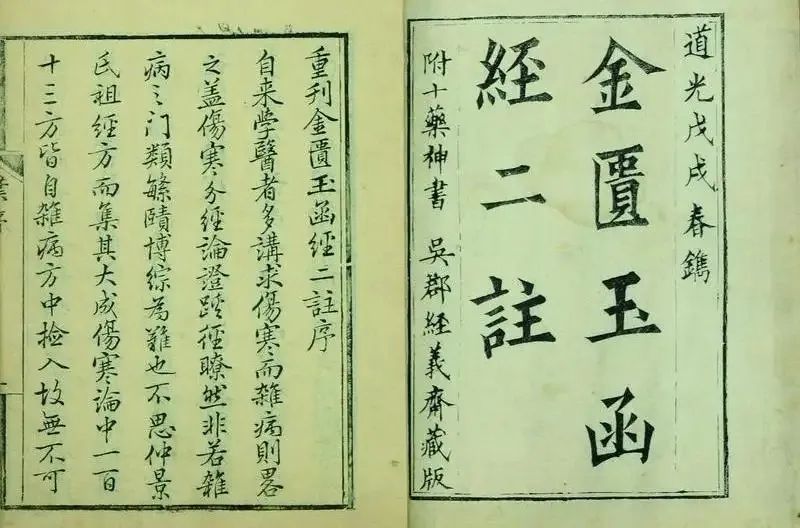 道光戊戌春鐫
金匱玉函
經二註
附十藥神書 吳郡經義齋藏版
重刊金匱玉函經二註序
自来学醫者多講求傷寒而雜病則畧
之盖傷寒分經論證蹊徑瞭然非若雜
病之门類繁賾博綜為難也不思仲景
氏祖經方而集其大成傷寒論中一百
十三方皆自雜病方中檢入故無不可